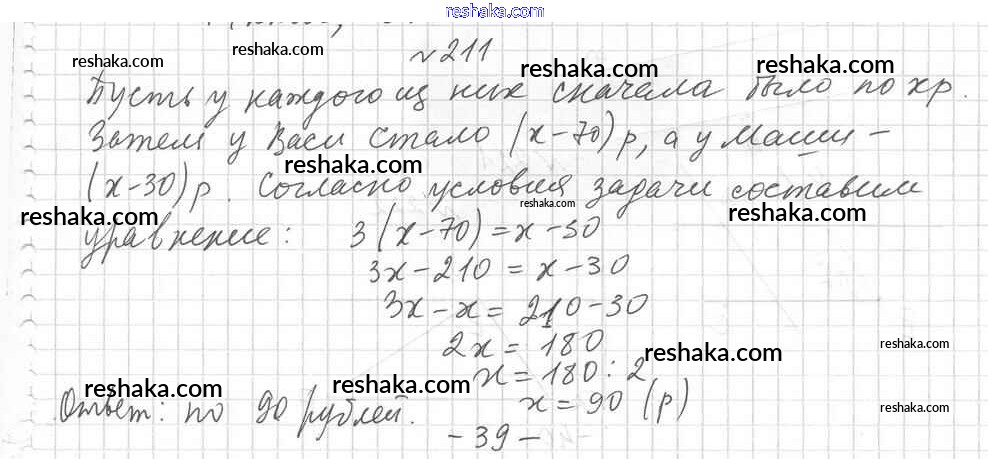 reshaka.com
№211
reshaka.com reshaka.com reshaka.com reshaka.com
Пусть у каждого из них сначала было по х р.
Затем у Васи стало (х-70) р, а у Маши -
reshaka.com reshaka.com
(х-30) р. Согласно условия задачи составим
reshaka.com reshaka.com reshaka.com
уравнение: 3(х-70)=х-30
3х-210=х-30
3х-х=210-30
2х=180
reshaka.com reshaka.com
х=180:2
reshaka.com reshaka.com
Ответ: по 90 рублей. х=90 (р)
reshaka.com
-39-